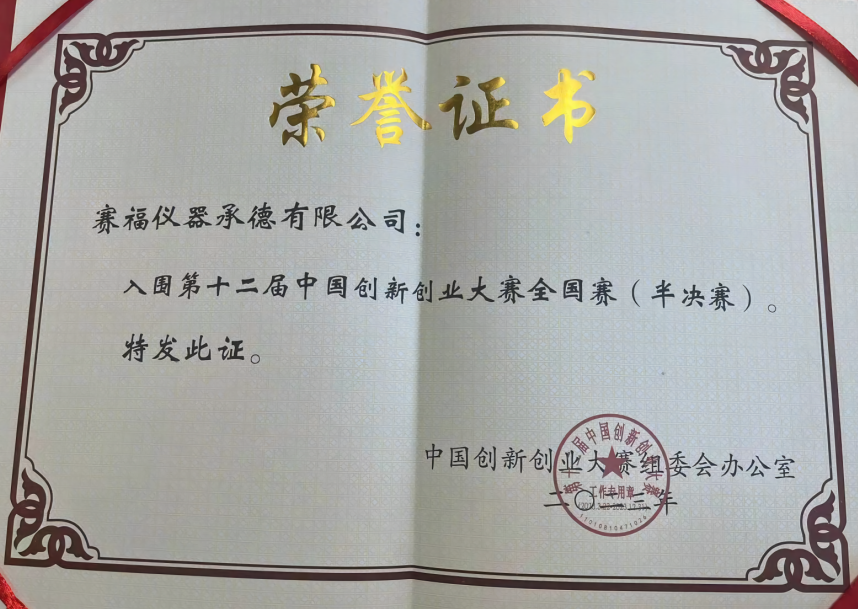 荣誉证书
赛福仪器承德有限公司：
入围第十二届中国创新创业大赛全国赛（半决赛）。
特发此证。
中国创新创业大赛组委会办公室
二〇二三年
第十二届中国创新创业大赛
工作专用章